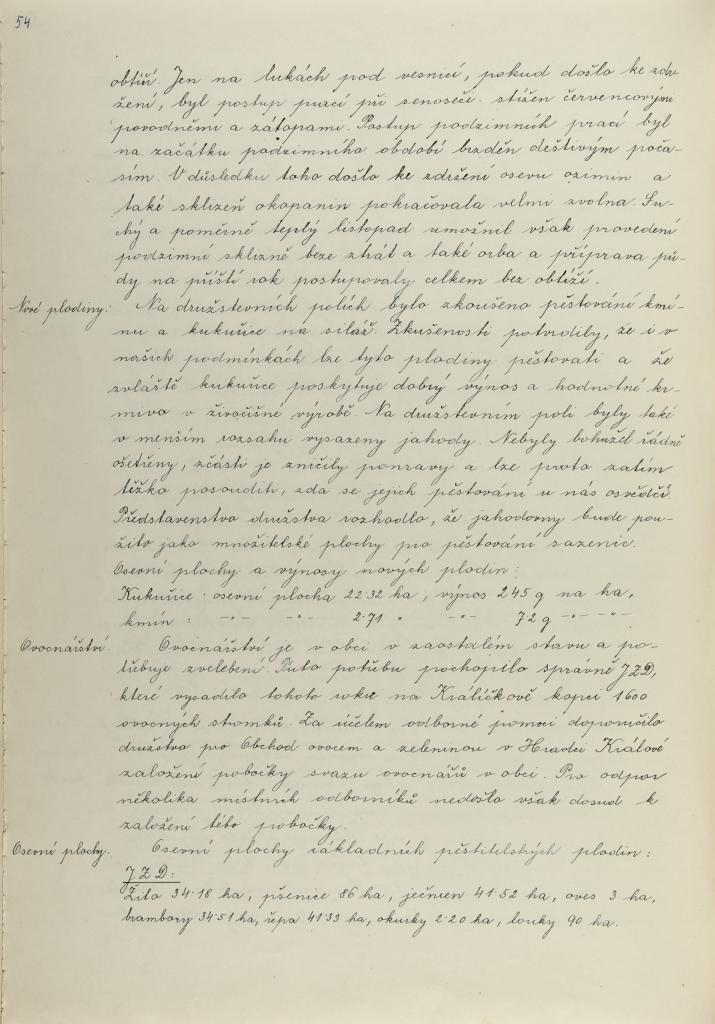 54
obtíží. Jen na lukách pod vesnicí, pokud došlo ke zdr-
žení, byl postup prací při senoseči stížen červencovými
povodněmi a zátopami. Postup podzimních prací byl
na začátku podzimního období brzděn deštivým poča-
sím. V důsledku toho došlo ke zdržení osevu ozimin a
také sklizeň okopanin pokračovala velmi zvolna. Su-
chý a poměrně teplý listopad umožnil však provedení
podzimní sklizně beze ztrát a také orba a příprava pů-
dy na příští rok postupovaly celkem bez obtíží.
Nové plodiny: Na družstevních polích bylo zkoušeno pěstování kmí-
nu a kukuřice na siláž. Zkušenosti potvrdily, že i v
našich podmínkách lze tyto plodiny pěstovati a že
zvláště kukuřice poskytuje dobrý výnos a hodnotné kr-
mivo v živočišné výrobě. Na družstevním poli byly také
v menším rozsahu vysazeny jahody. Nebyly bohužel řádně
ošetřeny, zčásti je zničily ponravy a lze proto zatím
těžko posouditi, zda se jejich pěstování u nás osvědčí.
Představenstvo družstva rozhodlo, že jahodovny bude pou-
žito jako množitelské plochy pro pěstování sazenic.
Osevní plochy a výnosy nových plodin:
Kukuřice: osevní plocha 22·32 ha, výnos 245 q na ha,
kmín: -"- -"- 2·71 " -"- 7·2 q -"- -"-
Ovocnářství. Ovocnářství je v obci v zaostalém stavu a po-
třebuje zvelebení. Tuto potřebu pochopilo správně JZD,
které vysadilo tohoto roku na Králíčkově kopci 1600
ovocných stromků. Za účelem odborné pomoci doporučilo
družstvo pro Obchod ovocem a zeleninou v Hradci Králové
založení pobočky svazu ovocnářů v obci. Pro odpor
několika místních odborníků nedošlo však dosud k
založení této pobočky.
Osevní plochy. Osevní plochy základních pěstitelských plodin:
JZD:
Žito 34·18 ha, pšenice 86 ha, ječmen 41·52 ha, oves 3 ha,
brambory 34·51 ha, řepa 41·33 ha, okurky 2·20 ha, louky 90 ha.